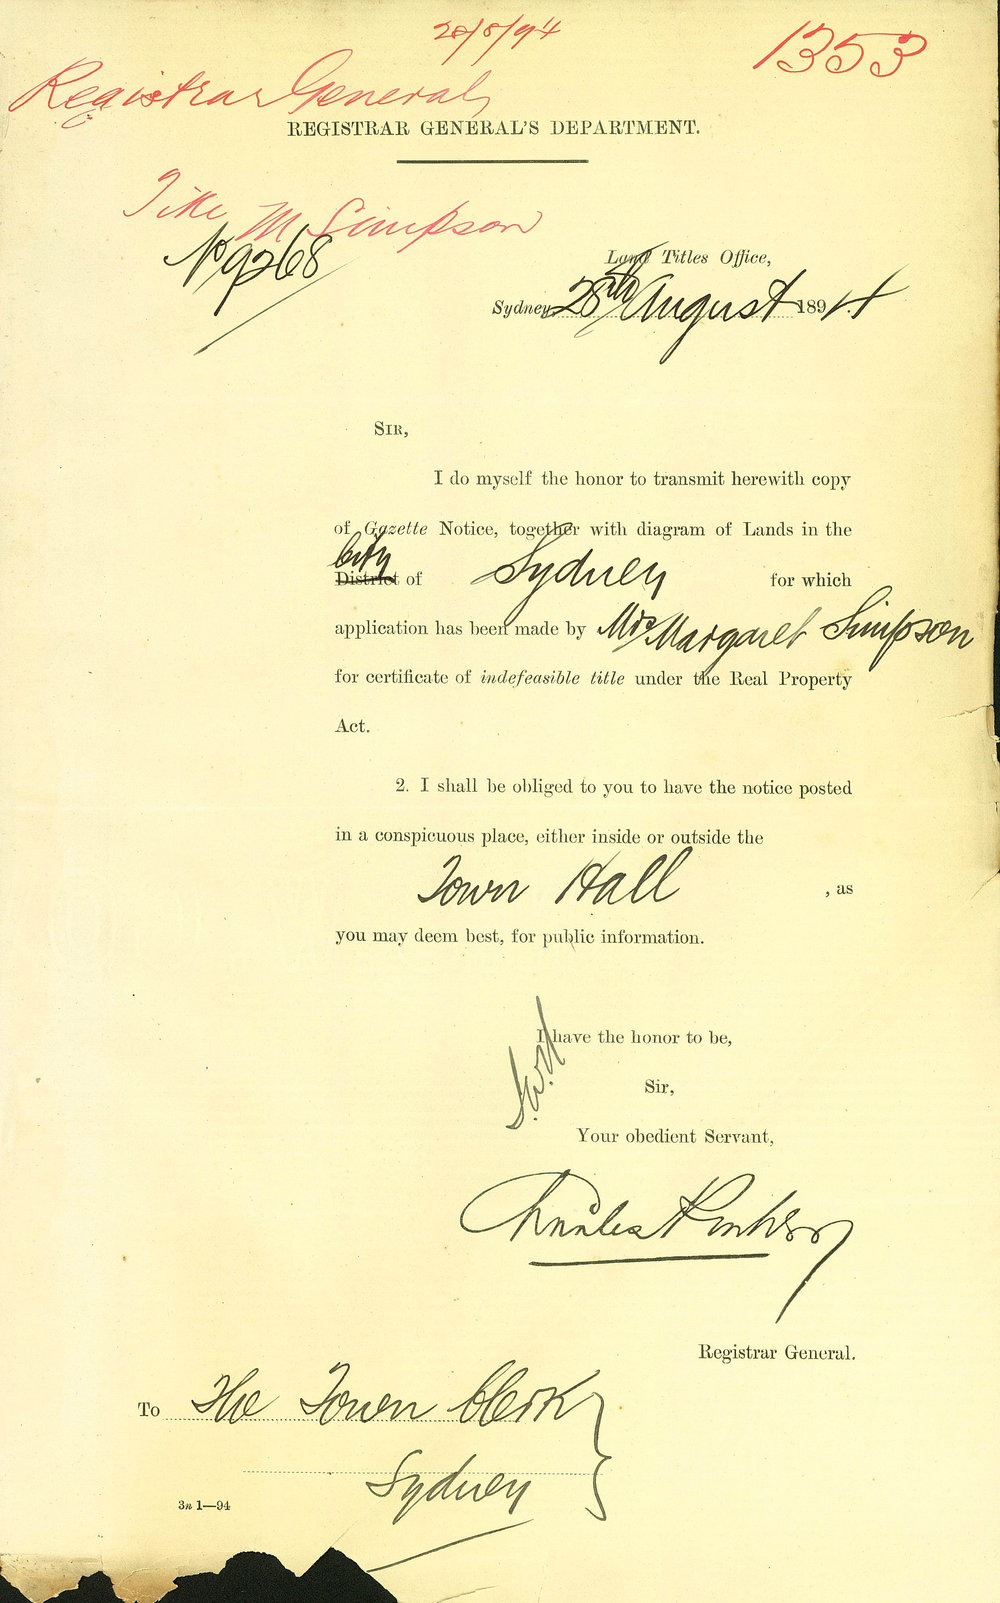 28/8/94
1353
Registrar General
REGISTRAR GENERAL'S DEPARTMENT.
Title M Simpson
No 9268
Land Titles Office,
Sydney 28th August 1894
SIR,
I do myself the honor to transmit herewith copy
of Gazette Notice, together with diagram of Lands in the
City
District of Sydney for which
application has been made by Mrs Margaret Simpson
for certificate of indefeasible title under the Real Property
Act.
2. I shall be obliged to you to have the notice posted
in a conspicuous place, either inside or outside the
Town Hall, as
you may deem best, for public information.
I have the honor to be,
Sir,
Your obedient Servant,
Charles
Registrar General.
To The Town Clerk
Sydney
3n 1—94